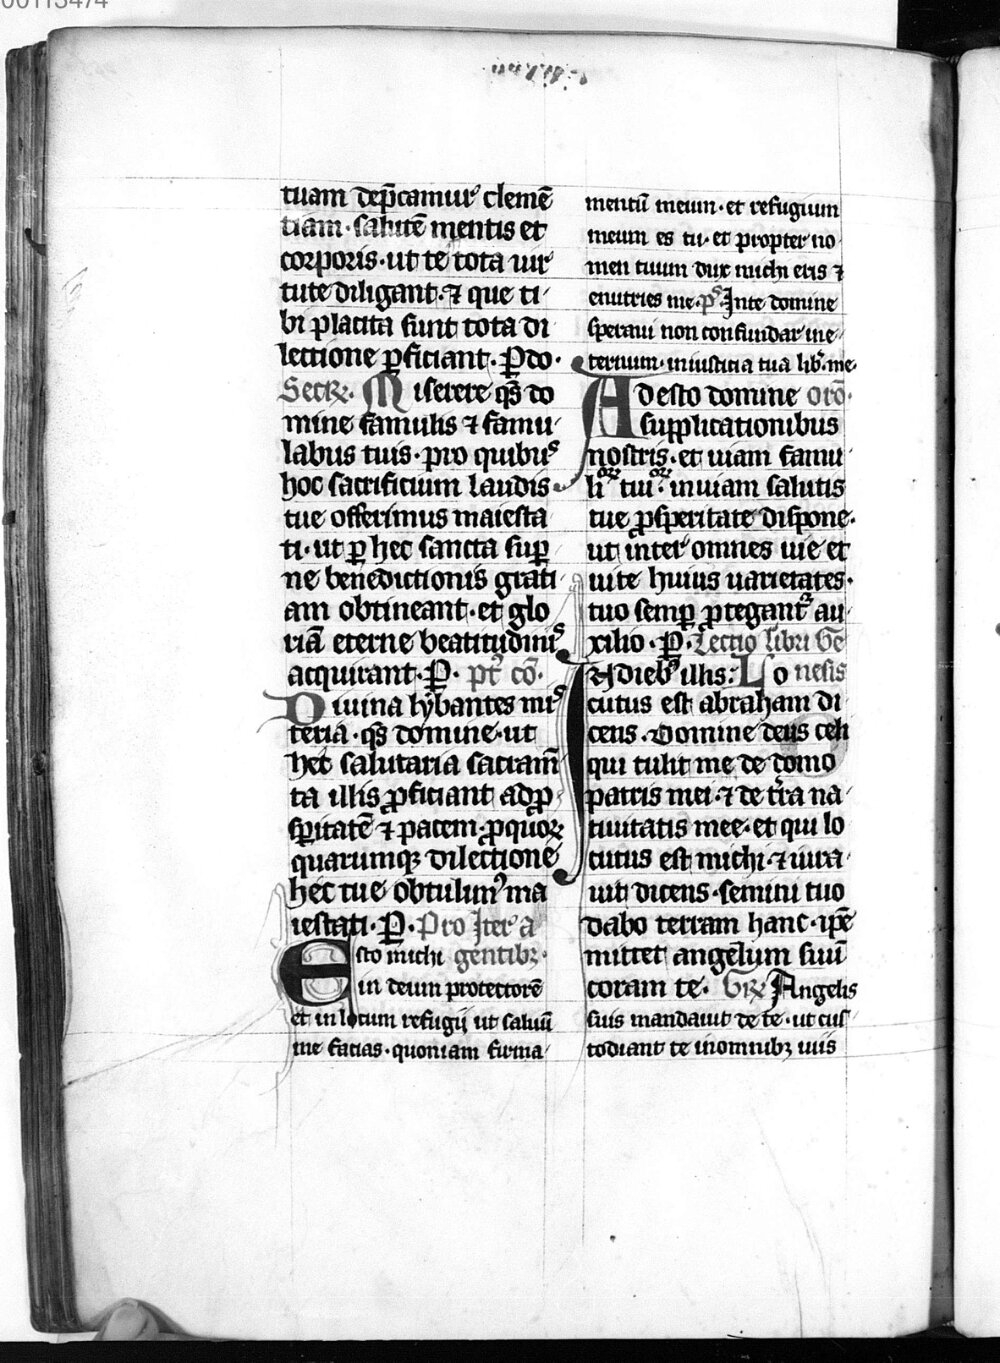 00113474
tuam dep̄camur clemē
tiam· salutē mentis et
corporis· ut te tota uir
tute diligant· ⁊ que ti
bi placita sunt tota di
lectione ꝑficiant· P̱ do·
Secr̄· Miserere qs̄ do
mine famulis ⁊ famu
labus tuis· pro quibus
hoc sacrificium laudis
tue offerimus maiesta
ti· ut ꝑ hec sancta suꝑ
ne benedictionis grati
am obtineant· et glo
riā eterne beatitudinis
acquirant· P̱· pt̄ cō·
Diuina lybantes mis
teria· qs̄ domine· ut
hec salutaria sacram̄
ta illis ꝓficiant ad ꝓ
sꝑitatē ⁊ pacem· ꝓ quoꝝ
quarumqꝫ dilectione
hec tue obtulim᷒ ma
iestati· P̱· Pro Iter a
Esto michi gentibꝫ·
in deum protectorē
et in locum refugij ut saluū
me facias· quoniam firma
mentū meum· et refugium
meum es tu· et propter no
men tuum dux michi eris ⁊
enutries me· ps̄ In te domine
speraui non confundar in e
ternum· in iusticia tua lib̄· me·
Adesto domine orō·
supplicationibus
nostris· et uiam famu
lioꝝ tuoꝝ· in uiam salutis
tue ꝓsꝑitate dispone·
ut inter omnes uie et
uite huius uarietates·
tuo semꝑ ꝓtegant᷑ au
xilio· P̱· Lectio libri Ge
In dieb᷒ illis: Lo nesis
cutus est abraham di
cens· Domine deus celi
qui tulit me de domo
patris mei· ⁊ de t̄ra na
tiuitatis mee· et qui lo
cutus est michi· ⁊ iura
uit dicens· semini tuo
dabo terram hanc· ip̄e
mittet angelum suū
coram te· Gr̄ Angelis
suis mandauit de te· ut cus
todiant te in omnibꝫ uiis